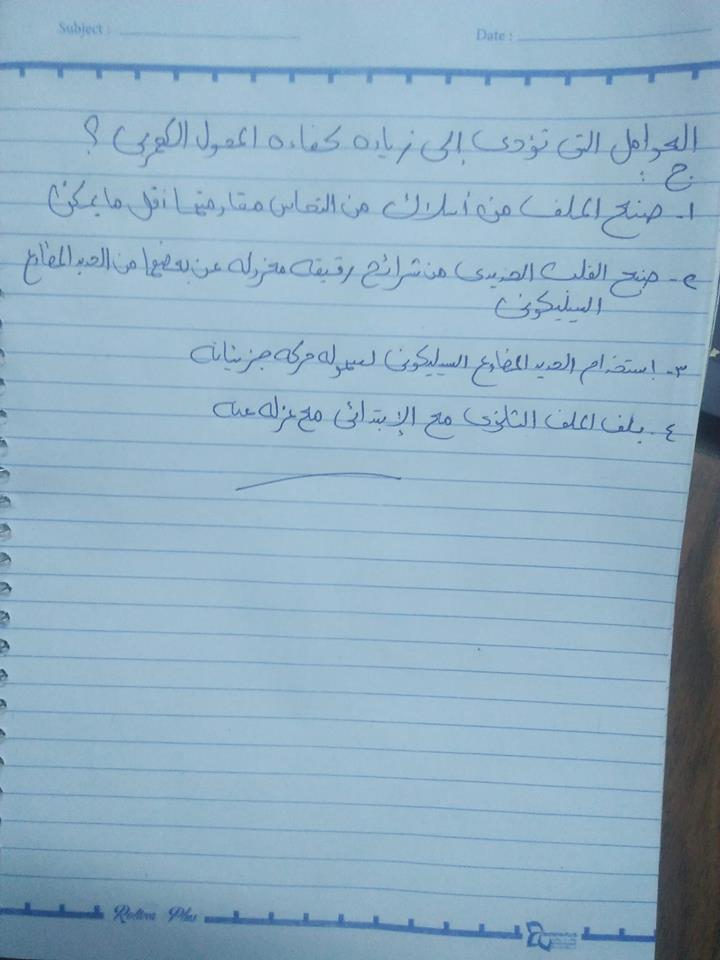 Subject :
Date :
العوامل التى تؤدى إلى زياده كفاءه المحول الكهربى ؟
ج :
١- صنع الملف من أسلاك من النحاس مقاومتها أقل ما يمكن
٢- صنع القلب الحديدى من شرائح رقيقه معزوله عن بعضها من الحديد المطاوع
السيليكونى
٣- إستخدام الحديد المطاوع السيليكونى لسهوله حركه جزيئاته
٤- يلف الملف الثانوى مع الإبتدائى مع عزله عنه